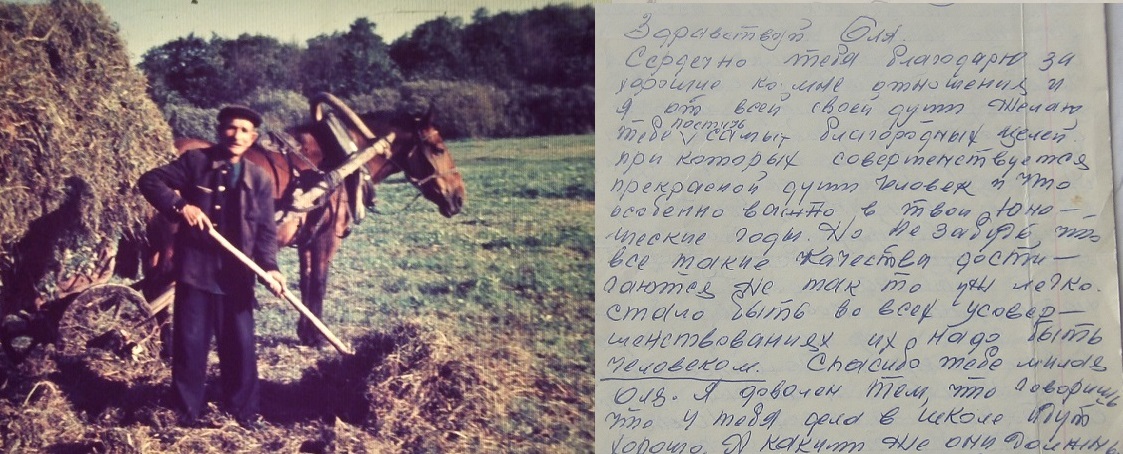 Здравствуй Оля.
Сердечно тебя благодарю за
хорошие ко мне отношения и
я от всей своей души желаю
тебе постичь самых благородных целей
при которых совершенствуется
прекрасной души человек и что
особенно важно в твои юно-
шеские годы. Но не забудь, что
все такие качества дости-
гаются не так то уж легко.
стало быть во всех усовер-
шенствованиях их, надо быть
человеком. Спасибо тебе милая
Оля. Я доволен тем, что говоришь
что у тебя дела в школе идут
хорошо. А какими же они должны